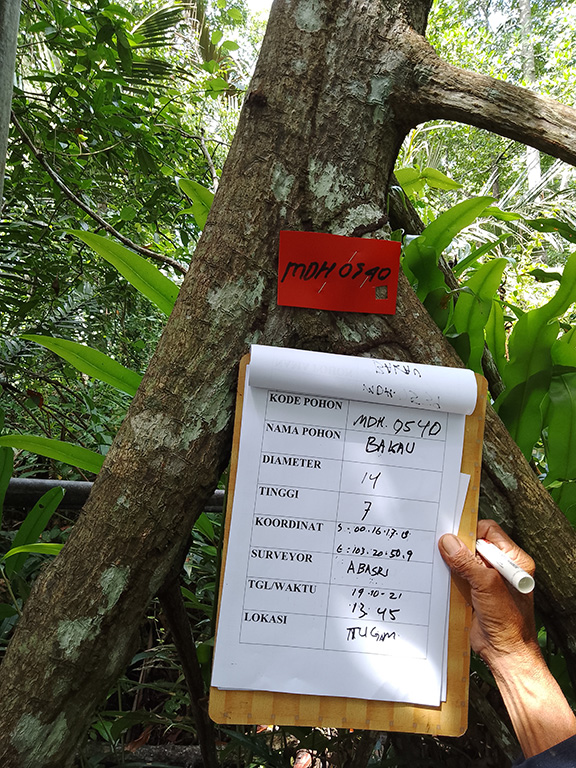 MDH 0540
KODE POHON MDH. 0540
NAMA POHON BAKAU
DIAMETER 14
TINGGI 7
KOORDINAT S : 00.16.17.8
E : 103.20.50.9
SURVEYOR ABASRI
TGL/WAKTU 19-10-21
13.45
LOKASI